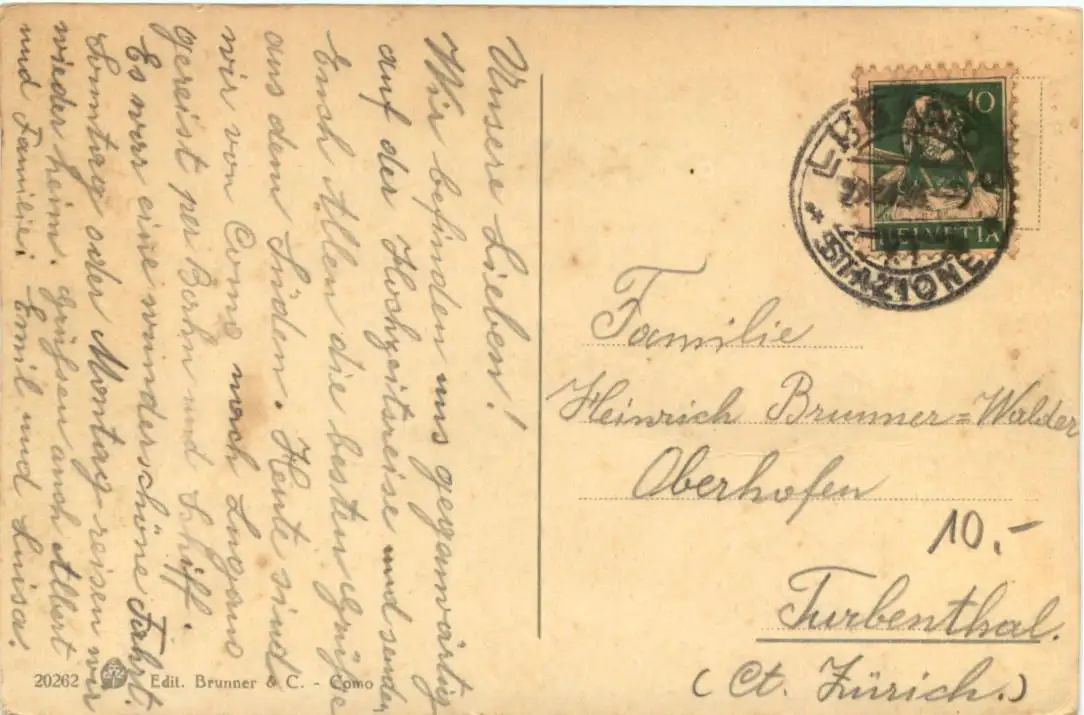 Unsere Lieben!
Wir befinden uns gegenwärtig
auf der Hochzeitsreise und senden
Euch Allen die besten Grüße
aus dem Süden. Heute sind
wir von Como nach Lugano
gereist per Bahn und Schiff.
Es war eine wunderschöne Fahrt.
Sonntag oder Montag reisen wir
wieder heim. grüssen auch Albert
und Familie. Emil und Luisa.
20262 Edit. Brunner & C. - Como
10
HELVETIA
LUGANO
* STAZIONE
Familie
Heinrich Brunner=Walder
Oberhofen
10.-
Turbenthal.
(Ct. Zürich.)